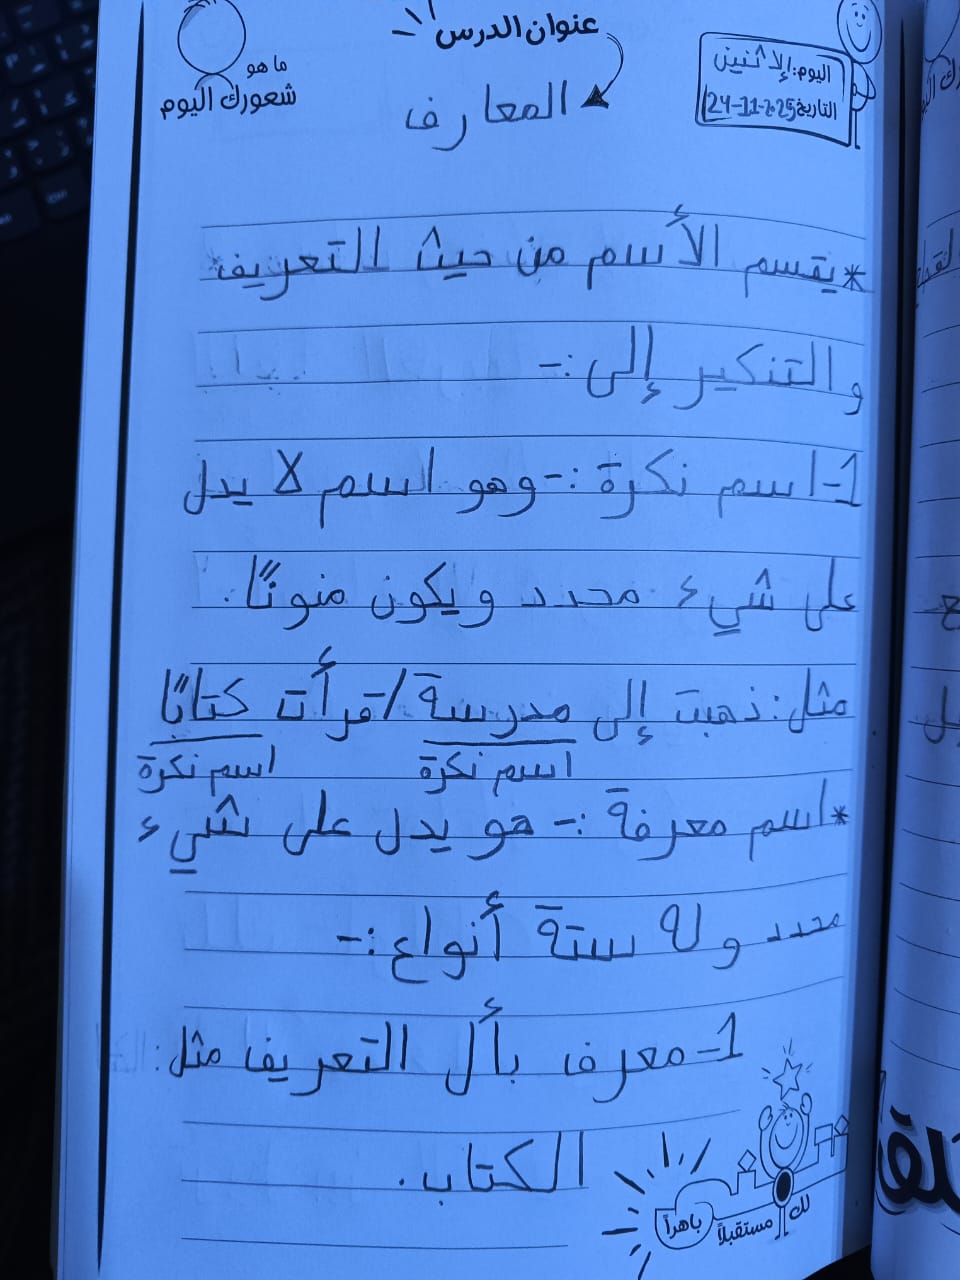 عنوان الدرس
المعارف
اليوم: إلاثنين
التاريخ 24-11-2025
ما هو
شعورك اليوم
*يقسم الأسم من حيث التعريف
والتنكير إلى :-
1-اسم نكرة :-وهو اسم لا يدل
على شيء محدد ويكون منونًا.
مثل: ذهبت إلى مدرسة / قرأت كتابًا
اسم نكرة اسم نكرة
*اسم معرفة :- هو يدل على شيء
محدد وله ستة أنواع :-
1-معرف بأل التعريف مثل:
الكتاب.
لك مستقبلاً باهراً